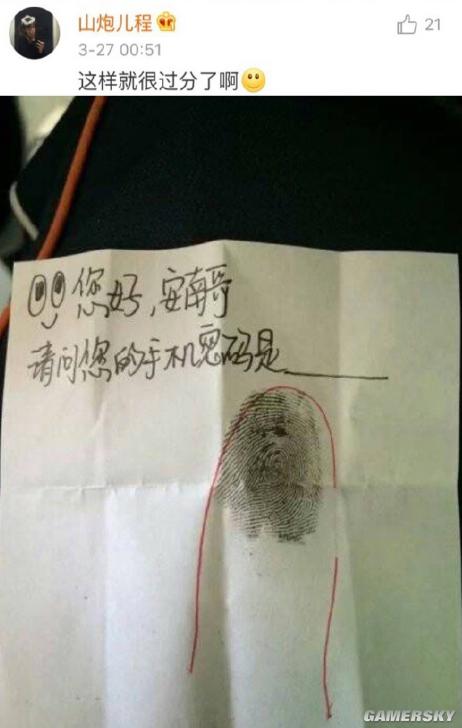 山炮儿程
3-27 00:51
21
这样就很过分了啊
您好,安南哥
请问您的手机密码是______
GAMERSKY